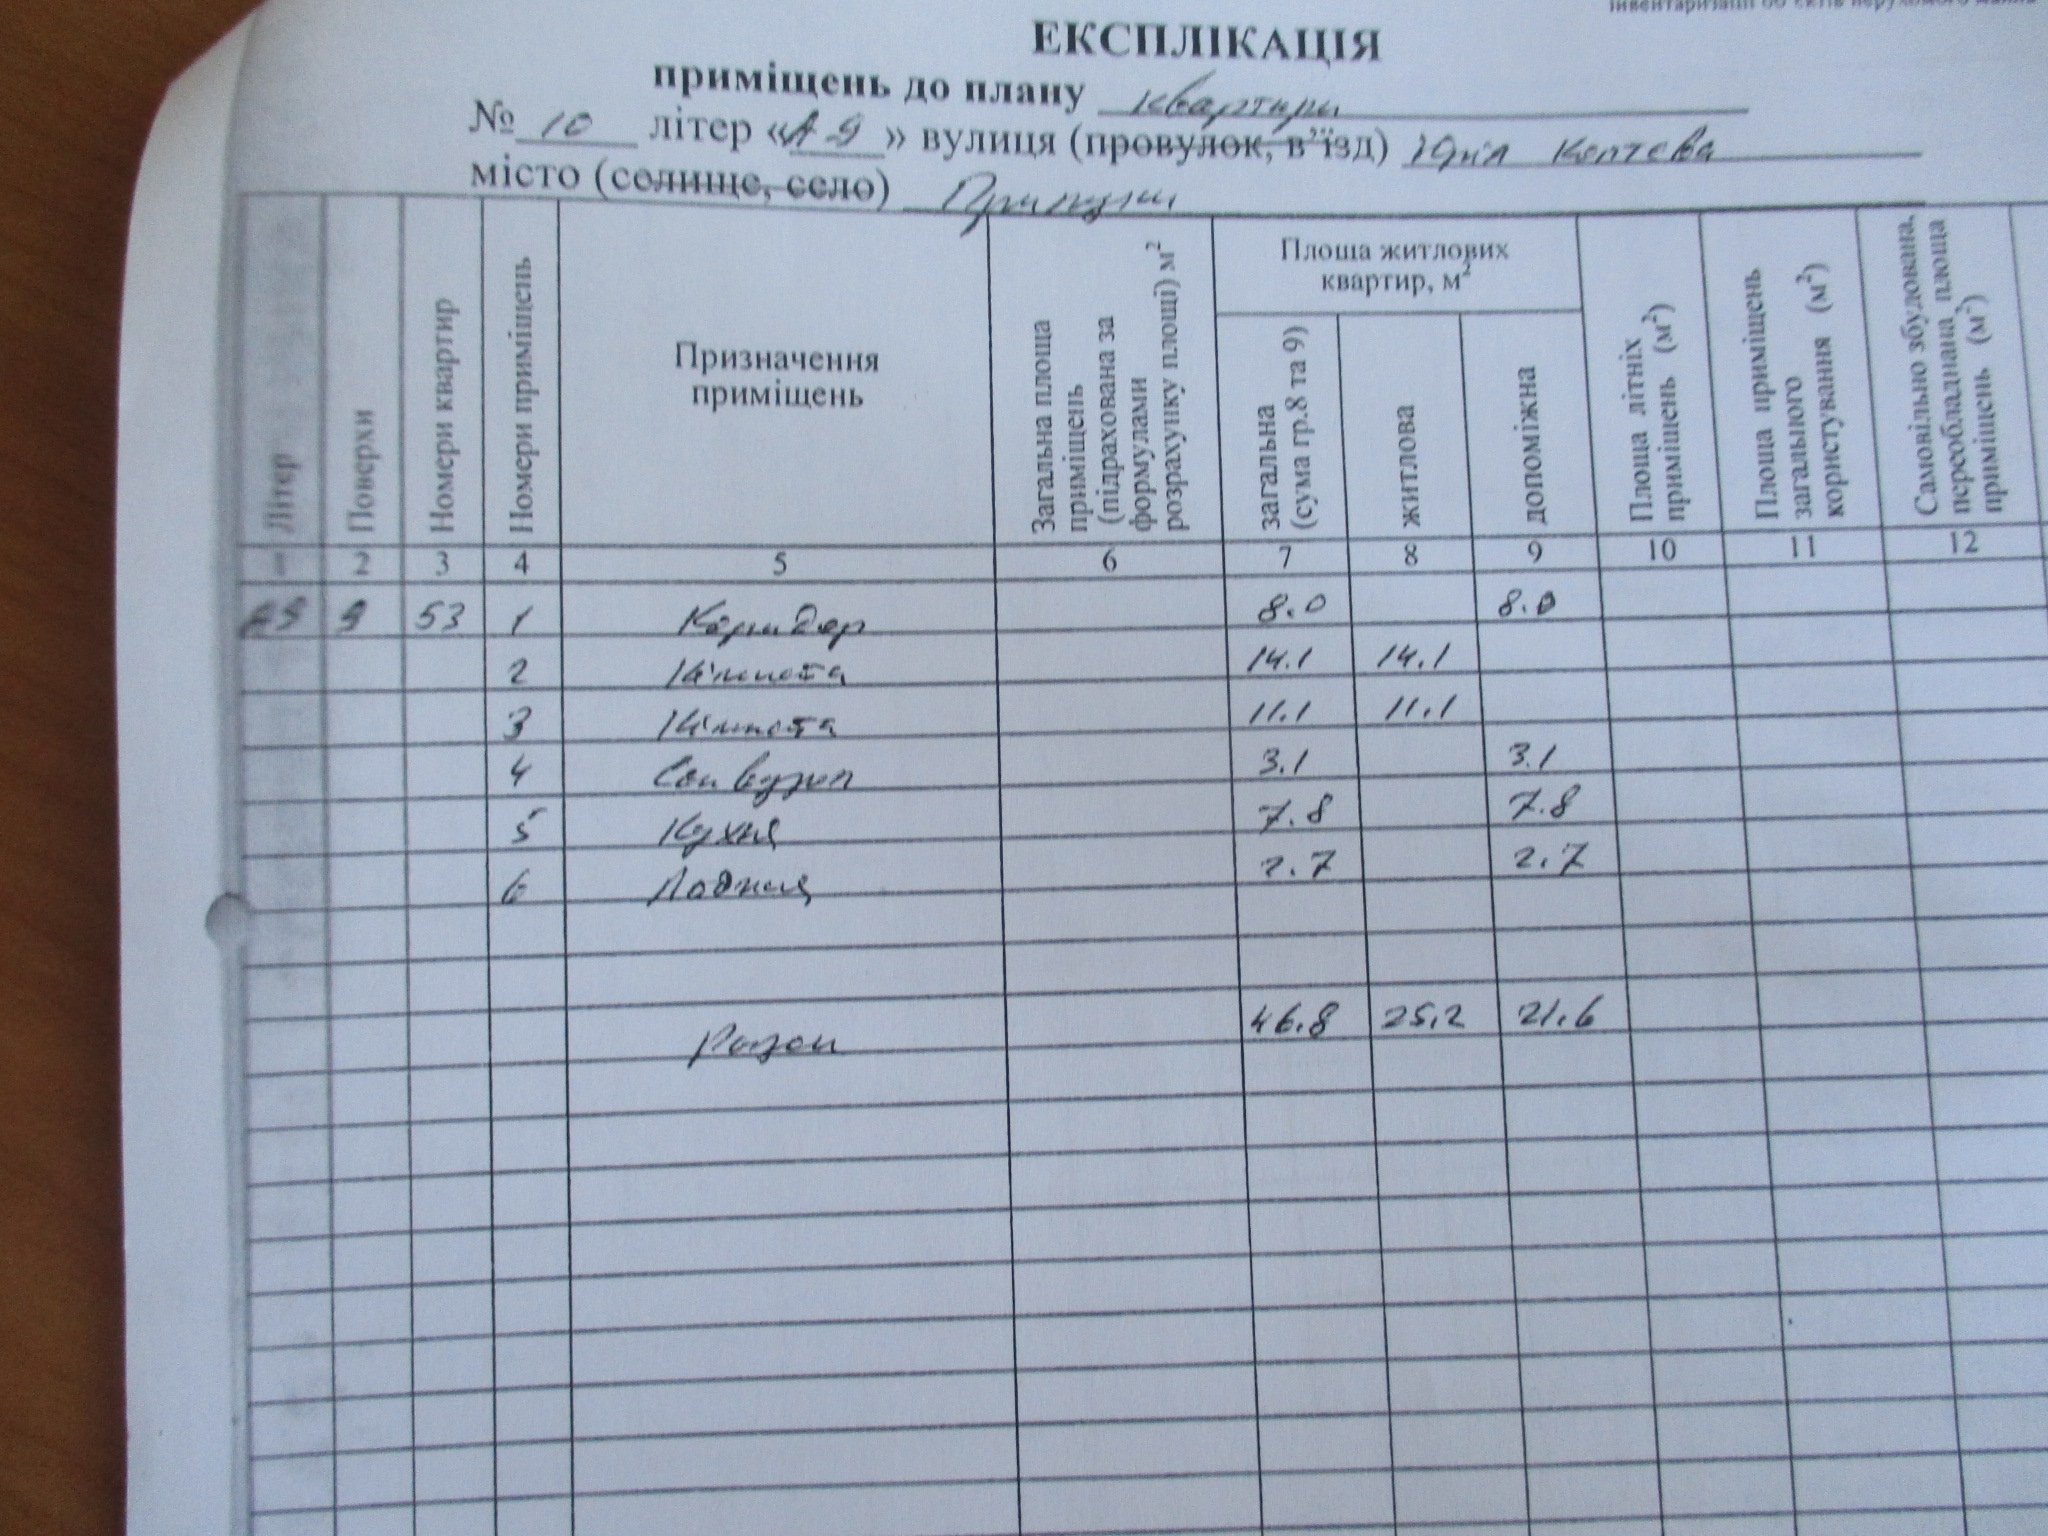 інвентаризації об'єктів нерухомого майна
ЕКСПЛІКАЦІЯ
приміщень до плану квартири
№ 10 літер «А-9» вулиця (провулок, в'їзд) Юрія Коптєва
місто (селище, село) Прилуки
Літер Поверхи Номери квартир Номери приміщень Призначення приміщень Загальна площа приміщень (підрахована за формулами розрахунку площі) м² Площа житлових квартир, м² загальна (сума гр.8 та 9) житлова допоміжна Площа літніх приміщень (м²) Площа приміщень загального користування (м²) Самовільно збудована, переобладнана площа приміщень (м²)
2 3 4 5 6 7 8 9 10 11 12
А9 9 53 1 Коридор 8.0 8.0
2 Кімната 14.1 14.1
3 Кімната 11.1 11.1
4 Сан вузол 3.1 3.1
5 Кухня 7.8 7.8
6 Лоджия 2.7 2.7
Разом 46.8 25.2 21.6